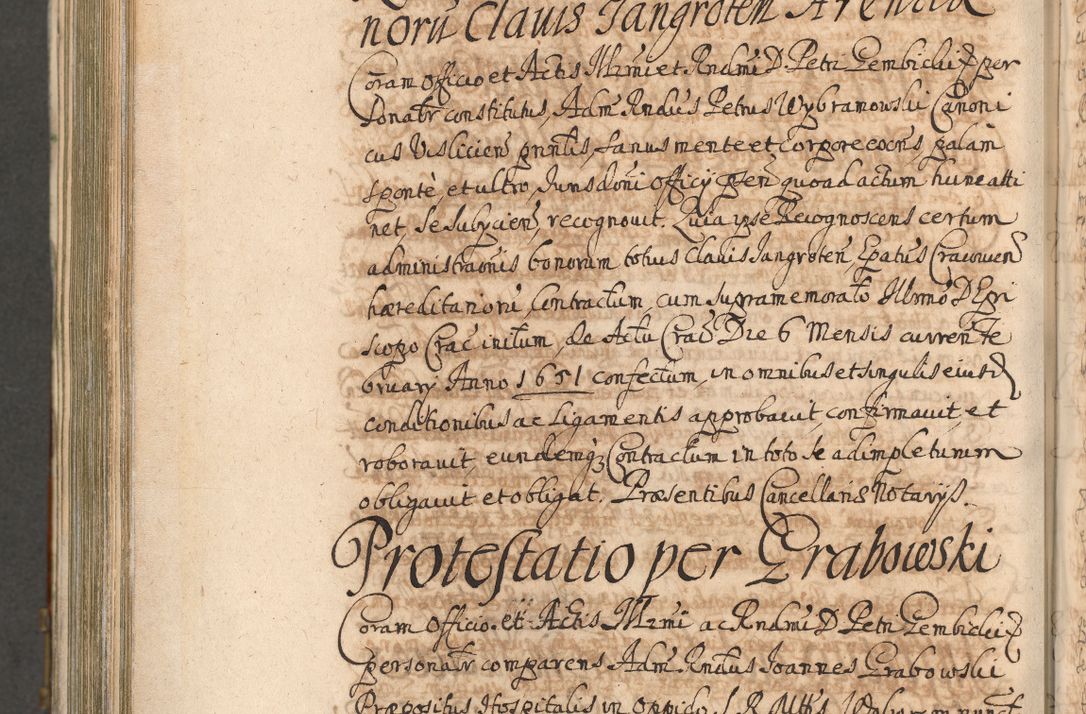 norũ Clavis Jangroten Arenda
Coram Officio et Actis Illmi et Rndmi D. Petri Gembicki &c per
sonalr constitutus, Adm Rndus Petrus Wybranowski Canoni
cus Visliciens prnlis, sanus mente et corpore eocns, palam
spontè, et ultro, Jurisdoni officij pten quoad actum hunc atti
net, se subijciens, recognovit. Quia ipse Recognoscens certum
administraonis bonorum totius Clavis Jangroten, Epatus Cracovien
hæreditarioru, Contractum, cum supramemorato Illmo D Epi
scopo Crac initum, de Actu Crac Die 6 Mensis curren Fe
bruarij Anno 1651 confectum, in omnibus et singulis eiusd
conditionibus ac ligamentis approbavit, confirmavit, et
roboravit, eundemq Contractum in toto se adimpleturum
obligavit et obligat. Præsentibus Cancellariæ Notarijs.
Protestatio per Grabowski
Coram Officio et Actis Illmi ac Rndmi D Petri Gembicki &c
personalr comparens Adm Rndus Joannes Grabowski
Præpositus Hospitalis in Oppido S. R. Mttis